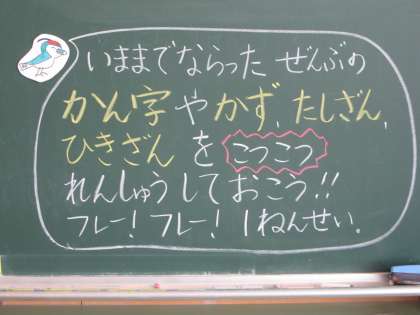 いままでならった ぜんぶの
かん字やかず、たしざん、
ひきざんをこつこつ
れんしゅうしておこう!!
フレー!フレー!1ねんせい。